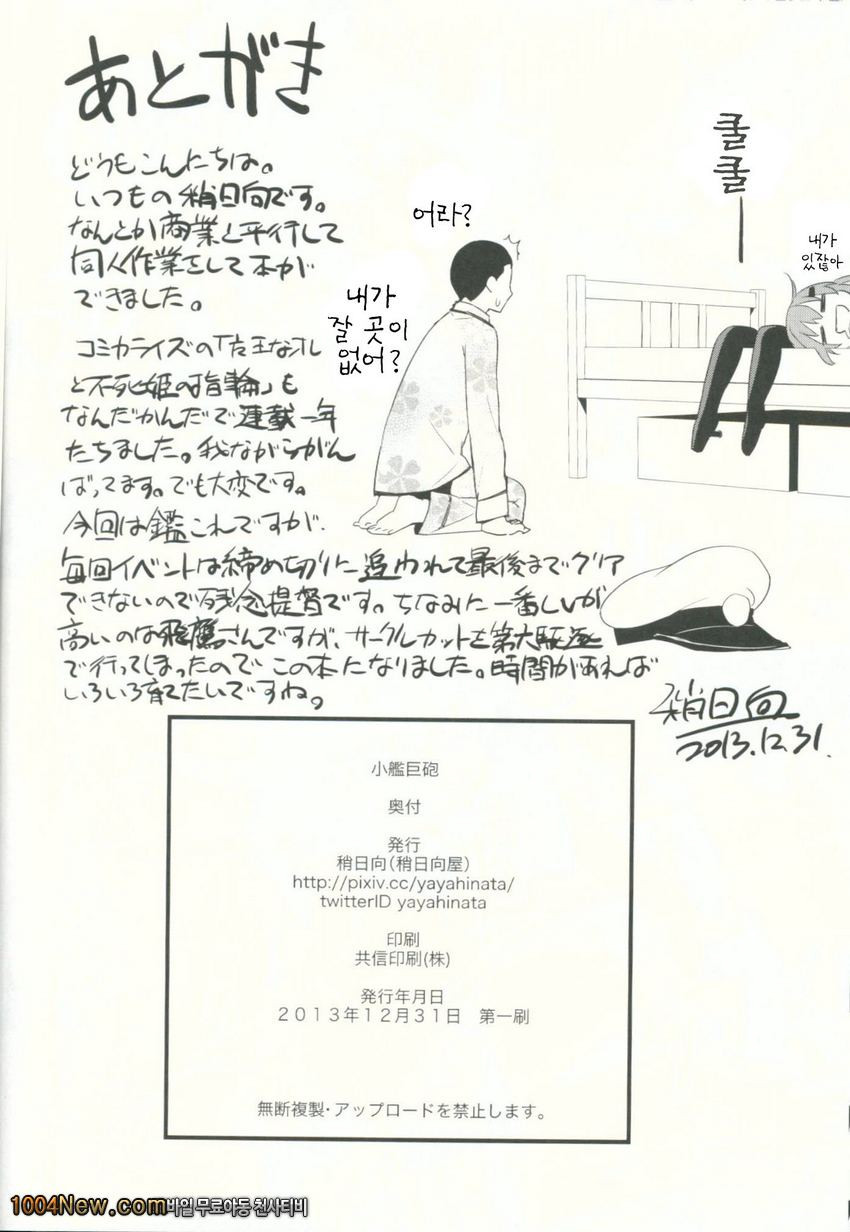 あとがき
どうもこんにちは。
いつもの稍日向です。
なんとか商業と平行して
同人作業をして本が
できました。
コミカライズの「佐王なオレ
と不死姫の指輪」も
なんだかんだで連載一年
たちました。我ながらがん
ばってます。でも大変です。
今回は鑑これですが、
毎回イベントは締め切りに追われて最後までクリア
できないので残念提督です。ちなみに一番レベルが
高いのは飛鷹さんですが、サークルカットを第六駆逐
で行ってしまったのでこの本になりました。時間があれば
いろいろ育てたいですね。
稍日向
2013.12.31.
어라?
내가
잘 곳이
없어?
쿨
쿨
내가
있잖아
小艦巨砲
奥付
発行
稍日向(稍日向屋)
http://pixiv.cc/yayahinata/
twitterID yayahinata
印刷
共信印刷(株)
発行年月日
2013年12月31日 第一刷
無断複製・アップロードを禁止します。
1004New.com
바일 무료야동 천사티비